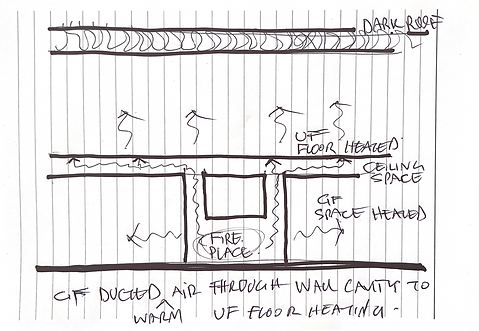 DARK ROOF
UF
FLOOR HEATED.
CEILING
SPACE
GF
SPACE HEATED
FIRE
PLACE.
GF DUCTED AIR THROUGH WALL CAVITY TO
WARM UF FLOOR HEATING.